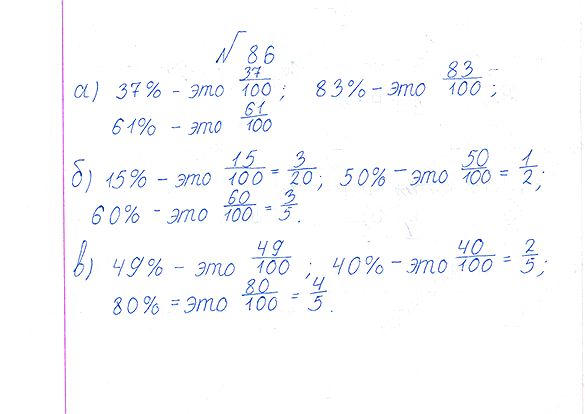 № 86
а) 37% - это 37/100; 83% - это 83/100;
61% - это 61/100
б) 15% - это 15/100 = 3/20; 50% - это 50/100 = 1/2;
60% - это 60/100 = 3/5.
в) 49% - это 49/100; 40% - это 40/100 = 2/5;
80% = это 80/100 = 4/5.